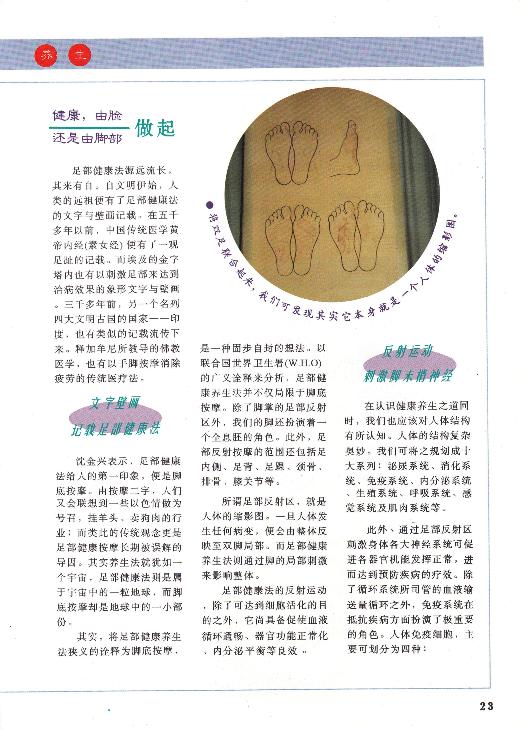 养 生
健康，由脸
还是由脚部 做起
足部健康法源远流长，
其来有自。自文明伊始，人
类的远祖便有了足部健康法
的文字与壁画记载。在五千
多年以前，中国传统医学黄
帝内经(素女经)便有了一观
足趾的记载。而埃及的金字
塔内也有以刺激足部来达到
治病效果的象形文字与壁画
。三千多年前，另一个名列
四大文明古国的国家——印
度，也有类似的记载流传下
来。释加牟尼所教导的佛教
医学，也有以手脚按摩消除
疲劳的传统医疗法。
文字壁画
记载足部健康法
沈金兴表示，足部健康
法给人的第一印象，便是脚
底按摩。由按摩二字，人们
又会联想到一些以色情做为
号召，挂羊头、卖狗肉的行
业；而类此的传统观念更是
足部健康按摩长期被误解的
导因。其实养生法就犹如一
个宇宙，足部健康法则是属
于宇宙中的一粒地球，而脚
底按摩却是地球中的一小部
份。
其实，将足部健康养生
法狭义的诠释为脚底按摩，
将双足联合起来，我们可发现其实它本身就是一个人体的缩影图。
是一种固步自封的想法。以
联合国世界卫生署(W.H.O)
的广义诠释来分析，足部健
康养生法并不仅局限于脚底
按摩。除了脚掌的足部反射
区外，我们的脚还扮演着一
个全息胚的角色。此外，足
部反射按摩的范围还包括足
内侧、足背、足踝、颈骨、
排骨、膝关节等。
所谓足部反射区，就是
人体的缩影图。一旦人体发
生任何病变，便会由整体反
映至双脚局部。而足部健康
养生法则通过脚的局部刺激
来影响整体。
足部健康法的反射运动
，除了可达到细胞活化的目
的之外，它尚具备促使血液
循环通畅、器官功能正常化
、内分泌平衡等良效。
反射运动
刺激脚末梢神经
在认识健康养生之道同
时，我们也应该对人体结构
有所认知。人体的结构复杂
奥妙，我们可将之规划成十
大系列：泌尿系统、消化系
统、免疫系统、内分泌系统
、生殖系统、呼吸系统、感
觉系统及肌肉系统等。
此外、通过足部反射区
刺激身体各大神经系统可促
进各器官机能发挥正常，进
而达到预防疾病的疗效。除
了循环系统所司管的血液输
送量循环之外，免疫系统在
抵抗疾病方面扮演了极重要
的角色。人体免疫细胞，主
要可划分为四种：
23